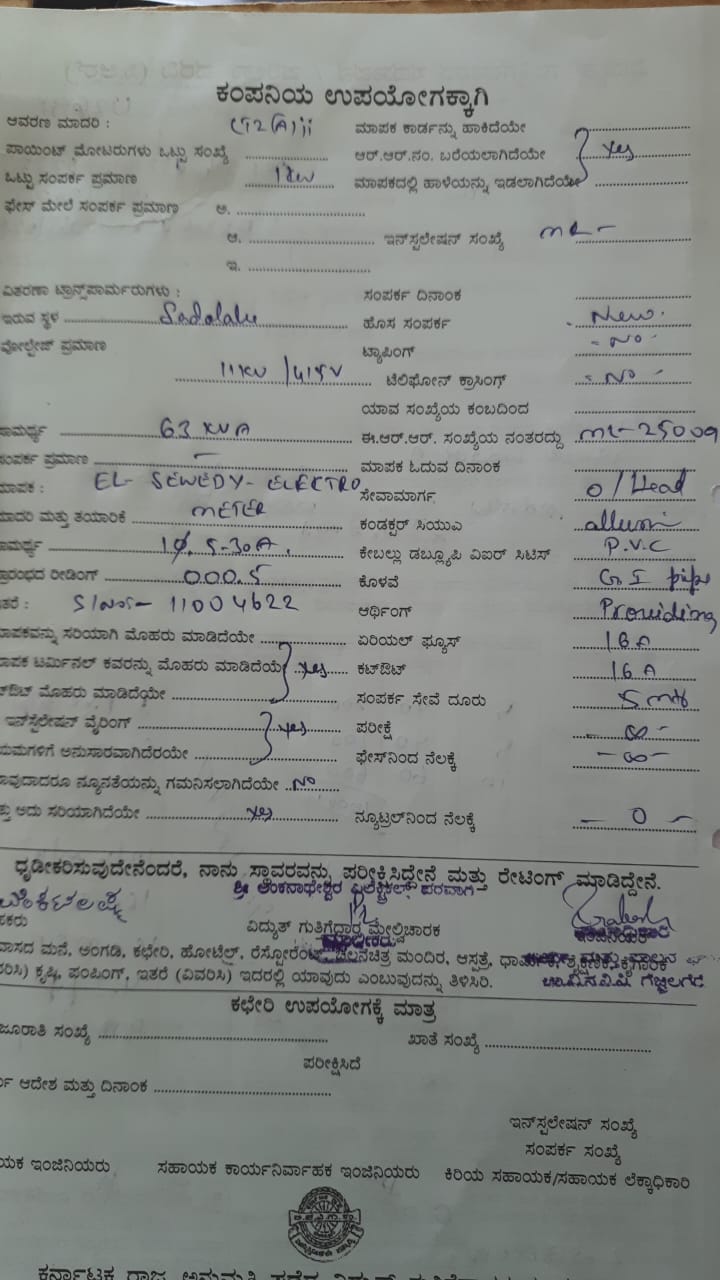 ಕಂಪನಿಯ ಉಪಯೋಗಕ್ಕಾಗಿ
ಆವರಣ ಮಾದರಿ : LT2(A)ii ಮಾಪಕ ಕಾರ್ಡನ್ನು ಹಾಕಿದೆಯೇ
ಪಾಯಿಂಟ್ ಮೋಟರುಗಳು ಒಟ್ಟು ಸಂಖ್ಯೆ ಆರ್.ಆರ್.ನಂ. ಬರೆಯಲಾಗಿದೆಯೇ yes
ಒಟ್ಟು ಸಂಪರ್ಕ ಪ್ರಮಾಣ 1 kw ಮಾಪಕದಲ್ಲಿ ಹಾಳೆಯನ್ನು ಇಡಲಾಗಿದೆಯೇ
ಫೇಸ್ ಮೇಲೆ ಸಂಪರ್ಕ ಪ್ರಮಾಣ ಅ.
ಆ. ಇನ್‌ಸ್ಟಲೇಷನ್ ಸಂಖ್ಯೆ ML-
ಇ.
ವಿತರಣಾ ಟ್ರಾನ್ಸ್‌ಪಾರ್ಮರುಗಳು : ಸಂಪರ್ಕ ದಿನಾಂಕ
ಇರುವ ಸ್ಥಳ ಹೊಸ ಸಂಪರ್ಕ New
ವೋಲ್ಟೇಜ್ ಪ್ರಮಾಣ ಟ್ಯಾಪಿಂಗ್ - NO -
11KV / 415V ಟೆಲಿಫೋನ್ ಕ್ರಾಸಿಂಗ್ - NO -
ಯಾವ ಸಂಖ್ಯೆಯ ಕಂಬದಿಂದ
ಸಾಮರ್ಥ್ಯ 63 KVA ಈ.ಆರ್.ಆರ್. ಸಂಖ್ಯೆಯ ನಂತರದ್ದು ML-25009
ಸಂಪರ್ಕ ಪ್ರಮಾಣ - ಮಾಪಕ ಓದುವ ದಿನಾಂಕ
ಮಾಪಕ : EL- SEWEDY- ELECTRO ಸೇವಾಮಾರ್ಗ O/Head
ಮಾದರಿ ಮತ್ತು ತಯಾರಿಕೆ METER ಕಂಡಕ್ಟರ್ ಸಿಯುಎ
ಸಾಮರ್ಥ್ಯ 5-30A. ಕೇಬಲ್ಲು ಡಬ್ಲ್ಯೂಪಿ ವಿಐರ್ ಸಿಟಿಸ್ P.V.C
ಪ್ರಾರಂಭದ ರೀಡಿಂಗ್ 000.5 ಕೊಳವೆ G.I pipe
ಇತರೆ : S/No:- 11004622 ಅರ್ಥಿಂಗ್ Providing
ಮಾಪಕವನ್ನು ಸರಿಯಾಗಿ ಮೊಹರು ಮಾಡಿದೆಯೇ ಏರಿಯಲ್ ಫ್ಯೂಸ್ 16A
ಮಾಪಕ ಟರ್ಮಿನಲ್ ಕವರನ್ನು ಮೊಹರು ಮಾಡಿದೆಯೇ yes ಕಟ್‌ಔಟ್ 16A
ಕಟ್‌ಔಟ್ ಮೊಹರು ಮಾಡಿದೆಯೇ ಸಂಪರ್ಕ ಸೇವೆ ದೂರು 5 mts
ಇನ್‌ಸ್ಟಲೇಷನ್ ವೈರಿಂಗ್ yes ಪರೀಕ್ಷೆ - ∞ -
ನಿಯಮಗಳಿಗೆ ಅನುಸಾರವಾಗಿದೆರಯೇ ಫೇಸ್‌ನಿಂದ ನೆಲಕ್ಕೆ - ∞ -
ಯಾವುದಾದರೂ ನ್ಯೂನತೆಯನ್ನು ಗಮನಿಸಲಾಗಿದೆಯೇ NO
ಮತ್ತು ಅದು ಸರಿಯಾಗಿದೆಯೇ yes ನ್ಯೂಟ್ರಲ್‌ನಿಂದ ನೆಲಕ್ಕೆ - 0 -
ಧೃಡೀಕರಿಸುವುದೇನೆಂದರೆ, ನಾನು ಸ್ಥಾವರವನ್ನು ಪರೀಕ್ಷಿಸಿದ್ದೇನೆ ಮತ್ತು ರೇಟಿಂಗ್ ಮಾಡಿದ್ದೇನೆ.
ಶ್ರೀ ಅಂಕನಾಥೇಶ್ವರ ಎಲೆಕ್ಟ್ರಿಕಲ್ಸ್ ಪರವಾಗಿ
ವಿದ್ಯುತ್ ಗುತಿಗೆದಾರ ಮೇಲ್ವಿಚಾರಕ
ಮಾಲೀಕರು
ವಾಸದ ಮನೆ, ಅಂಗಡಿ, ಕಛೇರಿ, ಹೋಟೆಲ್, ರೆಸ್ಟೋರೆಂಟ್, ಚಲನಚಿತ್ರ ಮಂದಿರ, ಆಸ್ಪತ್ರೆ,
ಕೃಷಿ, ಪಂಪಿಂಗ್, ಇತರೆ (ವಿವರಿಸಿ) ಇದರಲ್ಲಿ ಯಾವುದು ಎಂಬುವುದನ್ನು ತಿಳಿಸಿರಿ.
ಕಛೇರಿ ಉಪಯೋಗಕ್ಕೆ ಮಾತ್ರ
ಮಂಜೂರಾತಿ ಸಂಖ್ಯೆ ಖಾತೆ ಸಂಖ್ಯೆ
ಪರೀಕ್ಷಿಸಿದೆ
ಆದೇಶ ಮತ್ತು ದಿನಾಂಕ
ಇನ್‌ಸ್ಟಲೇಷನ್ ಸಂಖ್ಯೆ
ಸಂಪರ್ಕ ಸಂಖ್ಯೆ
ಯಕ ಇಂಜಿನಿಯರು ಸಹಾಯಕ ಕಾರ್ಯನಿರ್ವಾಹಕ ಇಂಜಿನಿಯರು ಕಿರಿಯ ಸಹಾಯಕ/ಸಹಾಯಕ ಲೆಕ್ಕಾಧಿಕಾರಿ